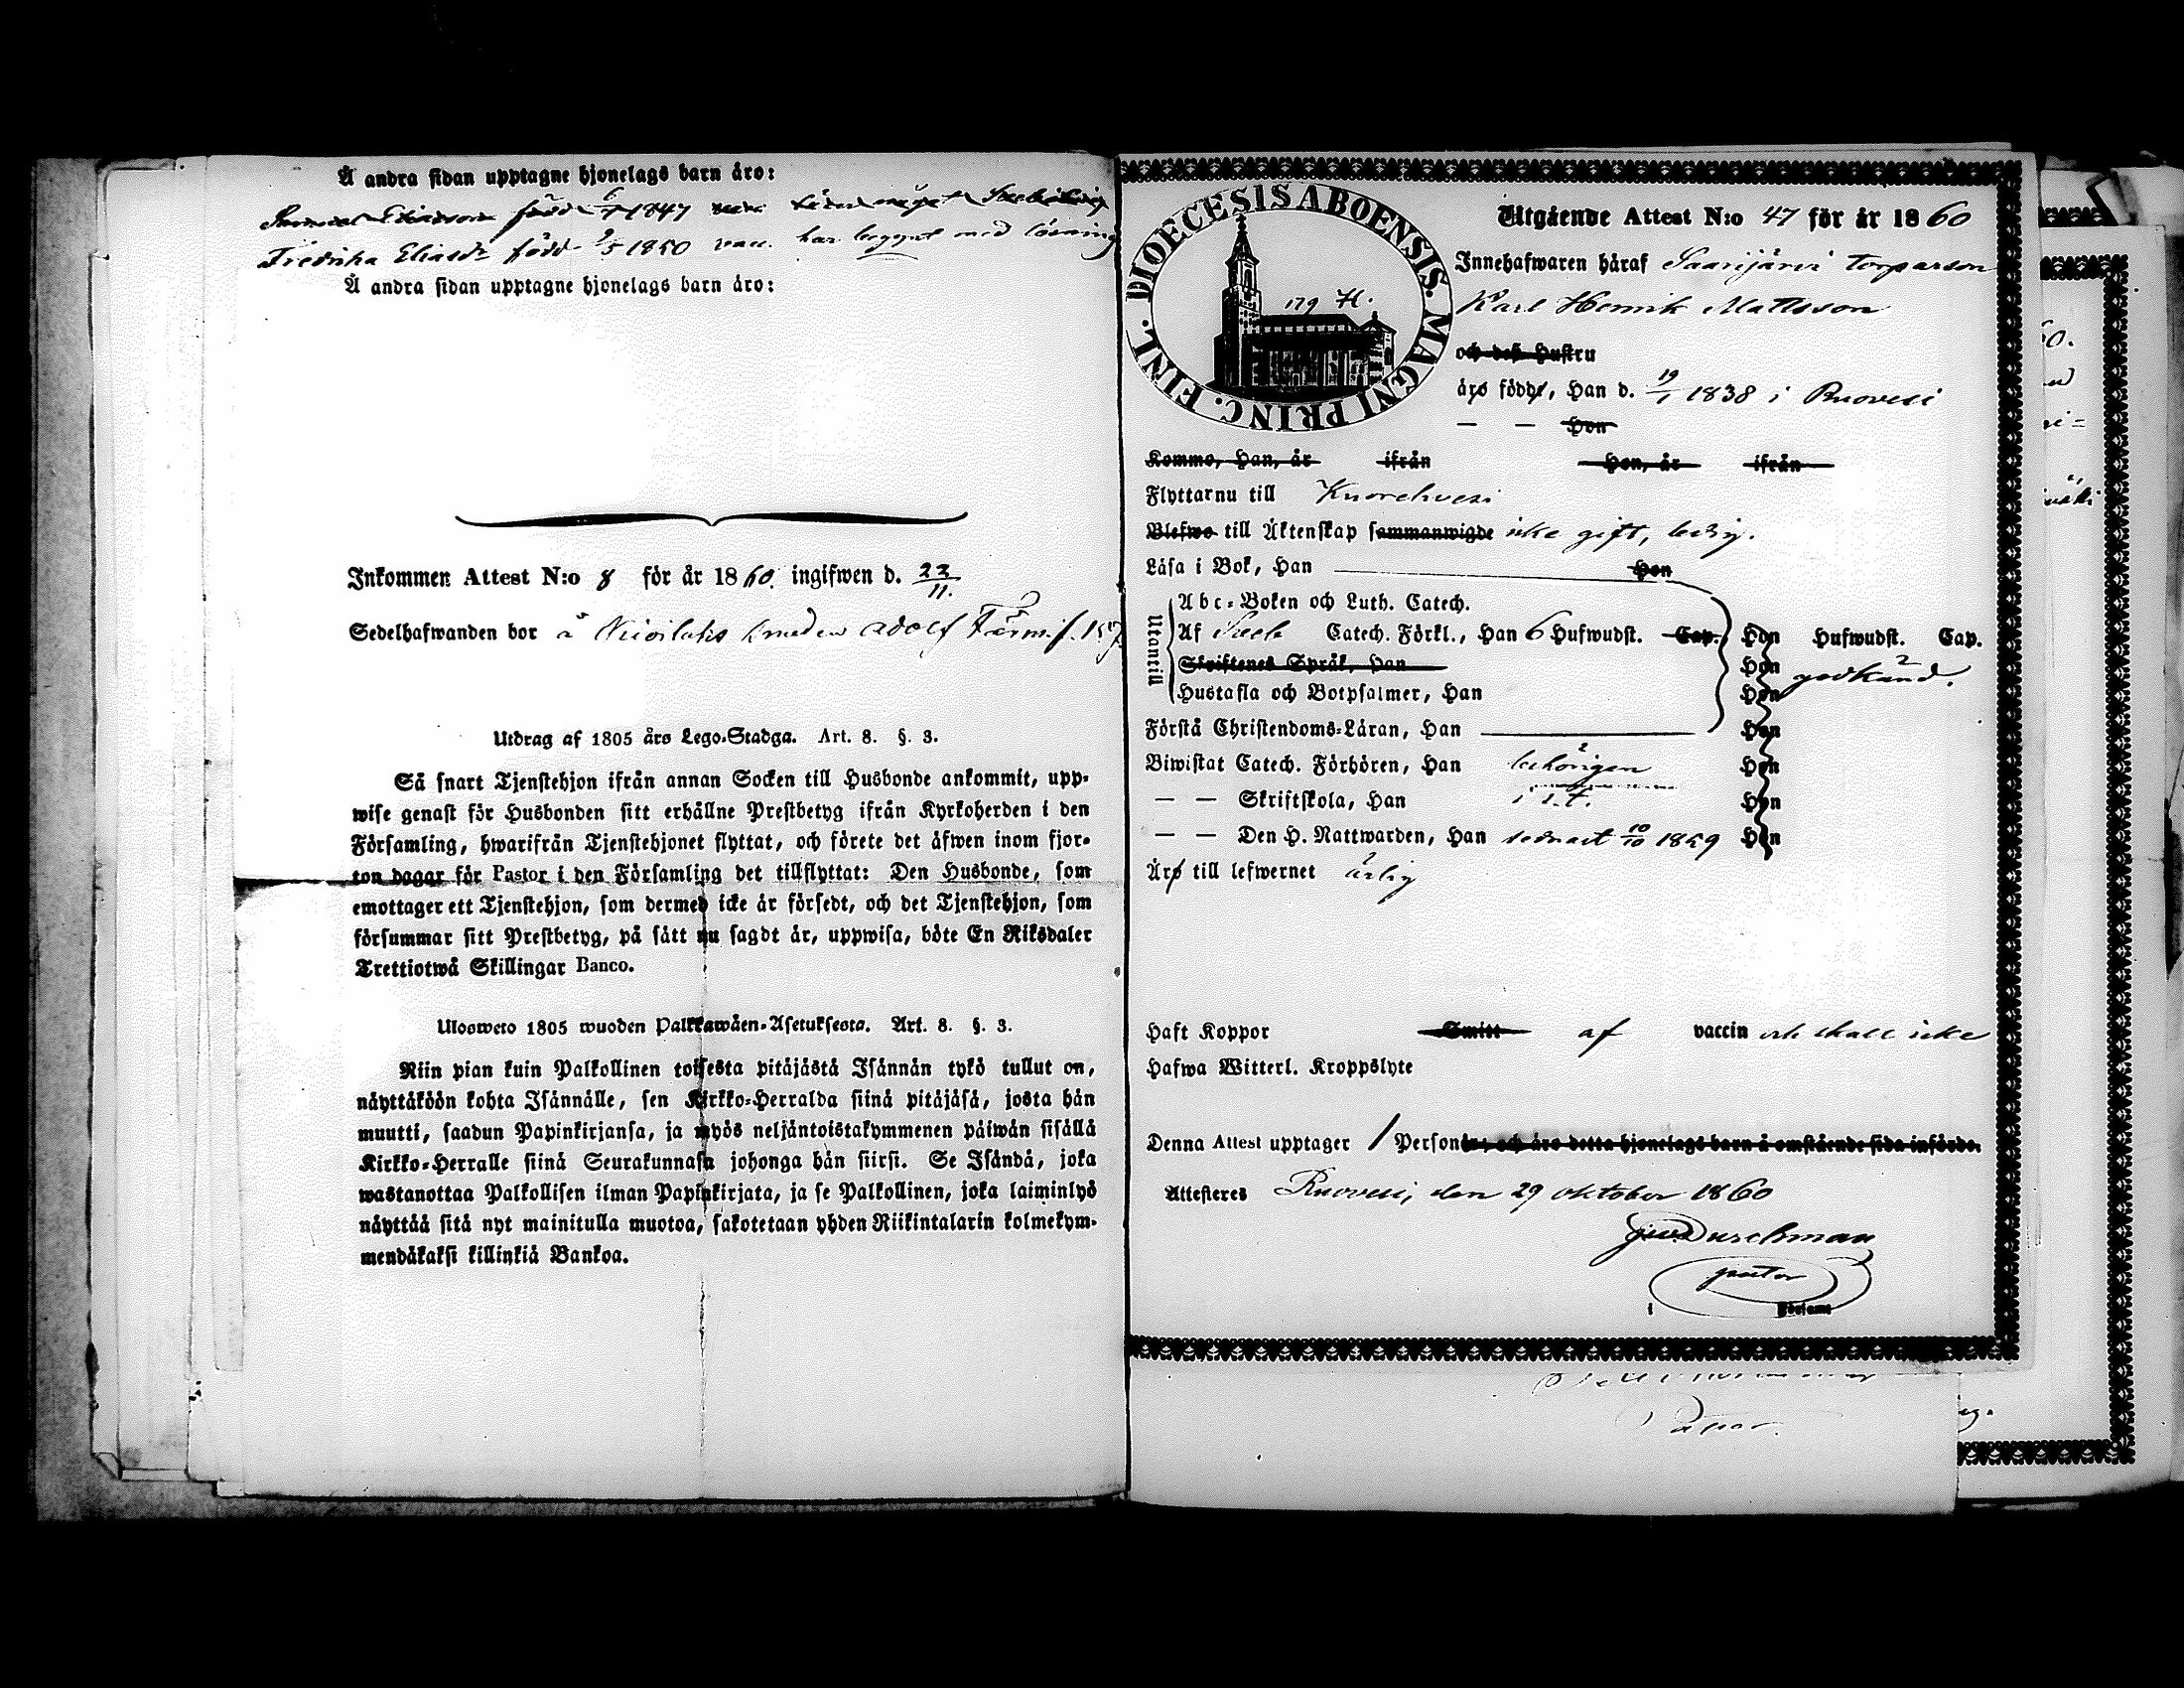 Å andra sidan upptagne hjonelags barn äro:
Samuel Eliasson född 6/7 1847
Fredrika Eliasdr född 2/5 1850 vacc. har begynt med läsning
Å andra sidan upptagne hjonelags barn äro:
Inkommen Attest N:o 8 för år 1860. ingifwen d. 22/11.
Sedelhafwanden bor å Adolf
Utdrag af 1805 års Lego-Stadga. Art. 8. §. 3.
Så snart Tjenstehjon ifrån annan Socken till Husbonde ankommit, upp-
wise genast för Husbonden sitt erhållne Prestbetyg ifrån Kyrkoherden i den
Församling, hwarifrån Tjenstehjonet flyttat, och förete det äfwen inom fjor-
ton dagar för Pastor i den Församling det tillflyttat: Den Husbonde, som
emottager ett Tjenstehjon, som dermed icke är försedt, och det Tjenstehjon, som
försummar sitt Prestbetyg, på sätt nu sagdt är, uppwisa, böte En Riksdaler
Trettiotwå Skillingar Banco.
Ulosweto 1805 wuoden Palkkawäen-Asetuksesta. Art. 8. §. 3.
Niin pian kuin Palkollinen toisesta pitäjästä Isännän tykö tullut on,
näyttäköön kohta Isännälle, sen Kirkko-Herralda siinä pitäjäsä, josta hän
muutti, saadun Papinkirjansa, ja myös neljäntoistakymmenen päiwän sisällä
Kirkko-Herralle siinä Seurakunnasa johonga hän siirsi. Se Isändä, joka
wastanottaa Palkollisen ilman Papinkirjata, ja se Palkollinen, joka laiminlyö
näyttää sitä nyt mainitulla muotoa, sakotetaan yhden Riikintalarin kolmekym-
mendäkaksi killinkiä Bankoa.
DIOECESIS ABOENSIS. MAGNI PRINC. FINL.
179 H.
Utgående Attest N:o 47 för år 1860
Innehafwaren häraf Saarijärvi torparson
Karl Henrik Mattsson
och deß Hustru
äro födde, Han d. 19/1 1838 i Ruovesi
— — Hon
Kommo, Han, år ifrån Hon, år ifrån
Flyttar nu till Kuorehvesi
Blefwo till Äktenskap sammanwigde icke gift, ledig.
Läsa i Bok, Han Hon
Utantill
Abc-Boken och Luth. Catech.
Af Seeb Catech. Förkl., Han 6 Hufwudst. Cap. Hon Hufwudst. Cap.
Skriftenes Språk, Han Hon godkänd.
Hustafla och Botpsalmer, Han Hon
Förstå Christendoms-Läran, Han Hon
Biwistat Catech. Förhören, Han behörigen Hon
— — Skriftskola, Han Hon
— — Den H. Nattwarden, Han sednast 10/10 1859 Hon
Äro till lefwernet ärlig
Haft Koppor Smitt af vaccin och skall icke
Hafwa Witterl. Kroppslyte
Denna Attest upptager 1 Personer, och äro detta hjonelags barn å omstående sida införde.
Attesteres Ruovesi, den 29 oktober 1860
Durchman
pastor
i Församl